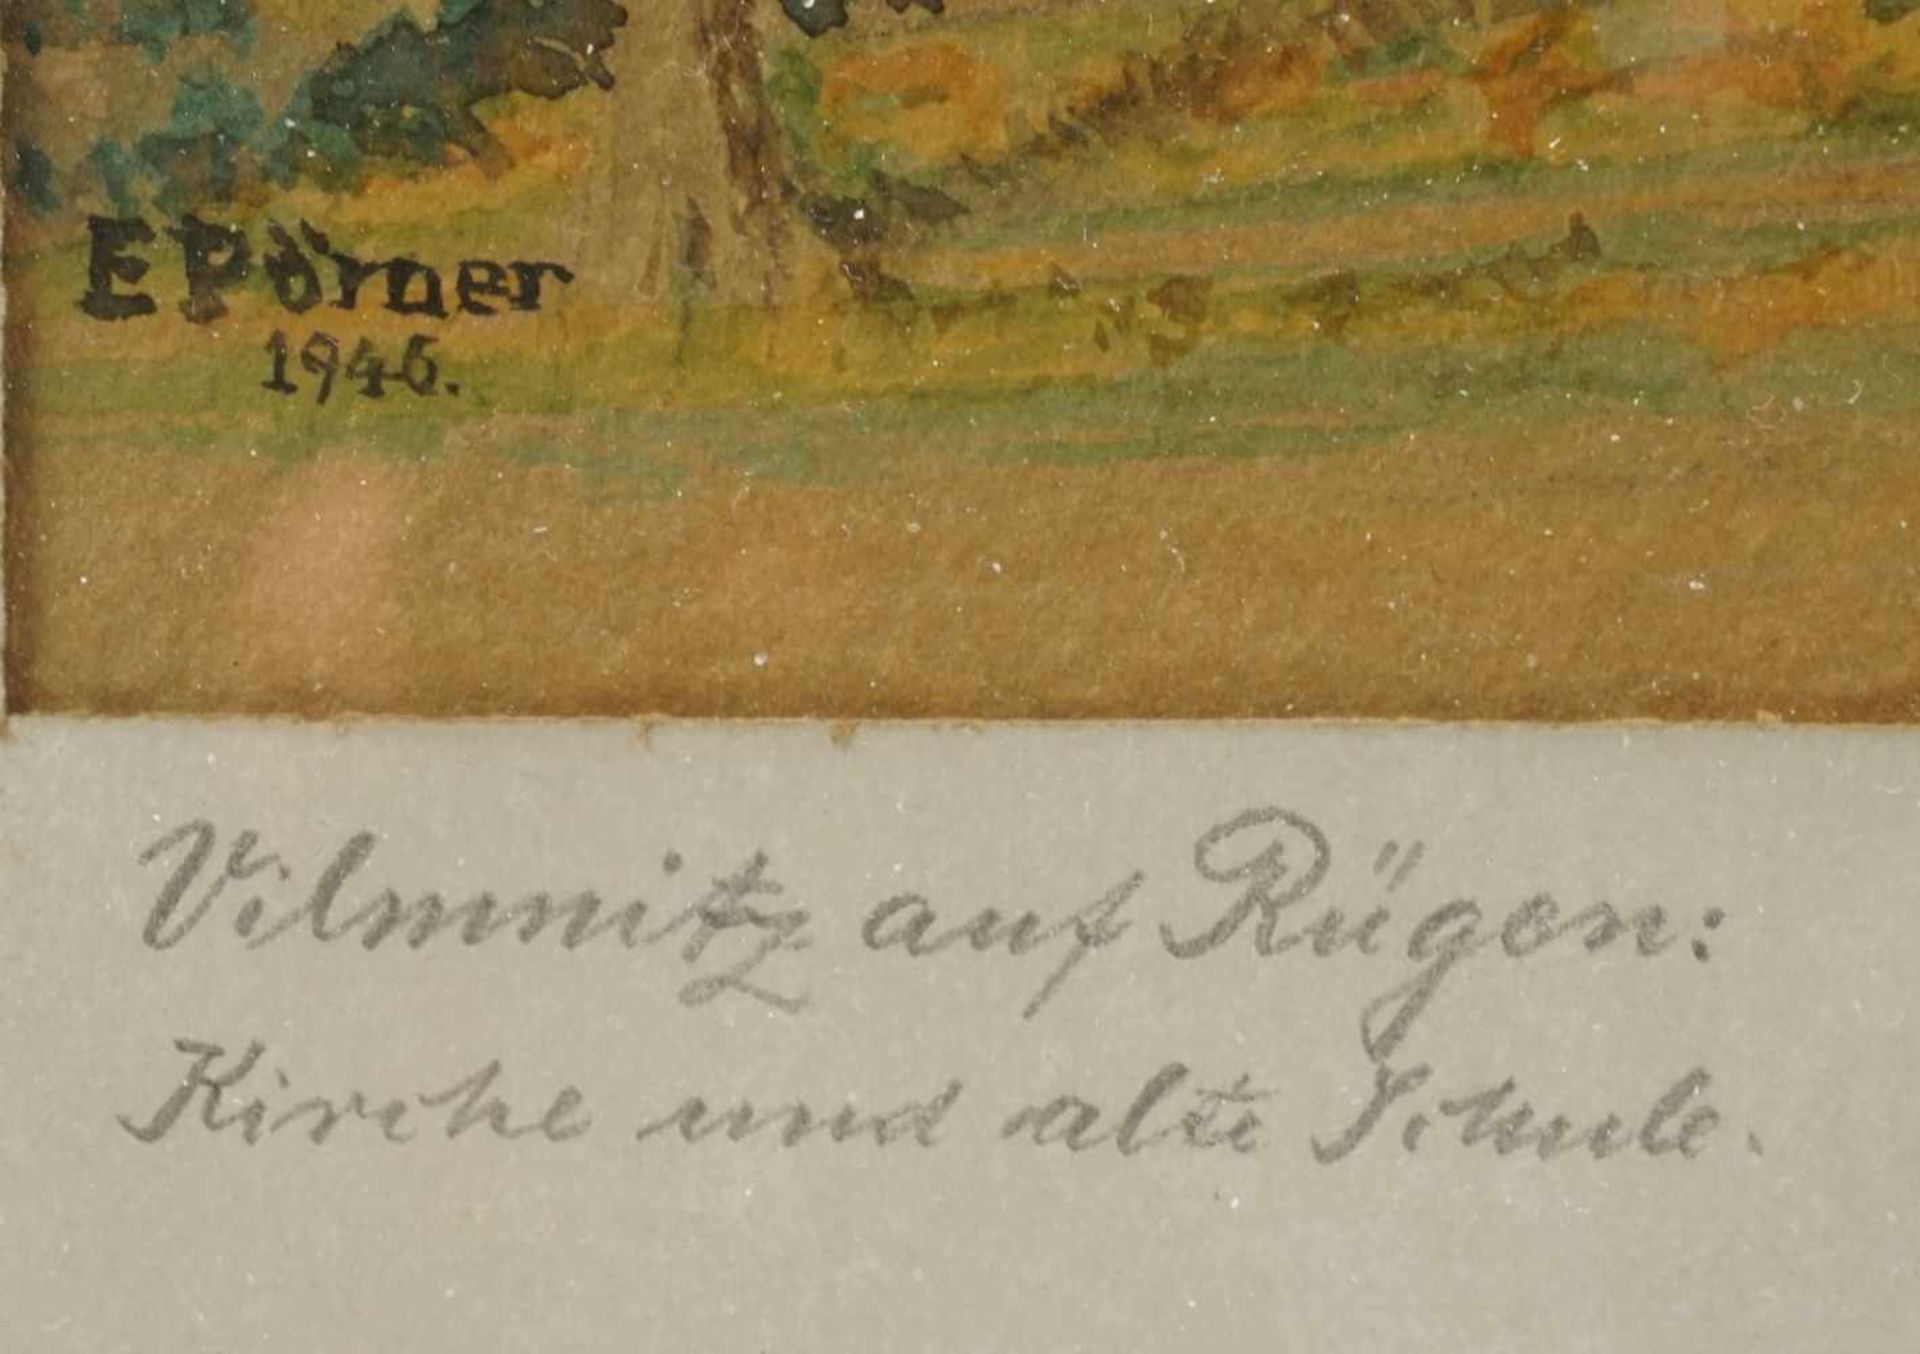 E Pörner
1946.
Vilmnitz auf Rügen:
Kirche und alte Schule.